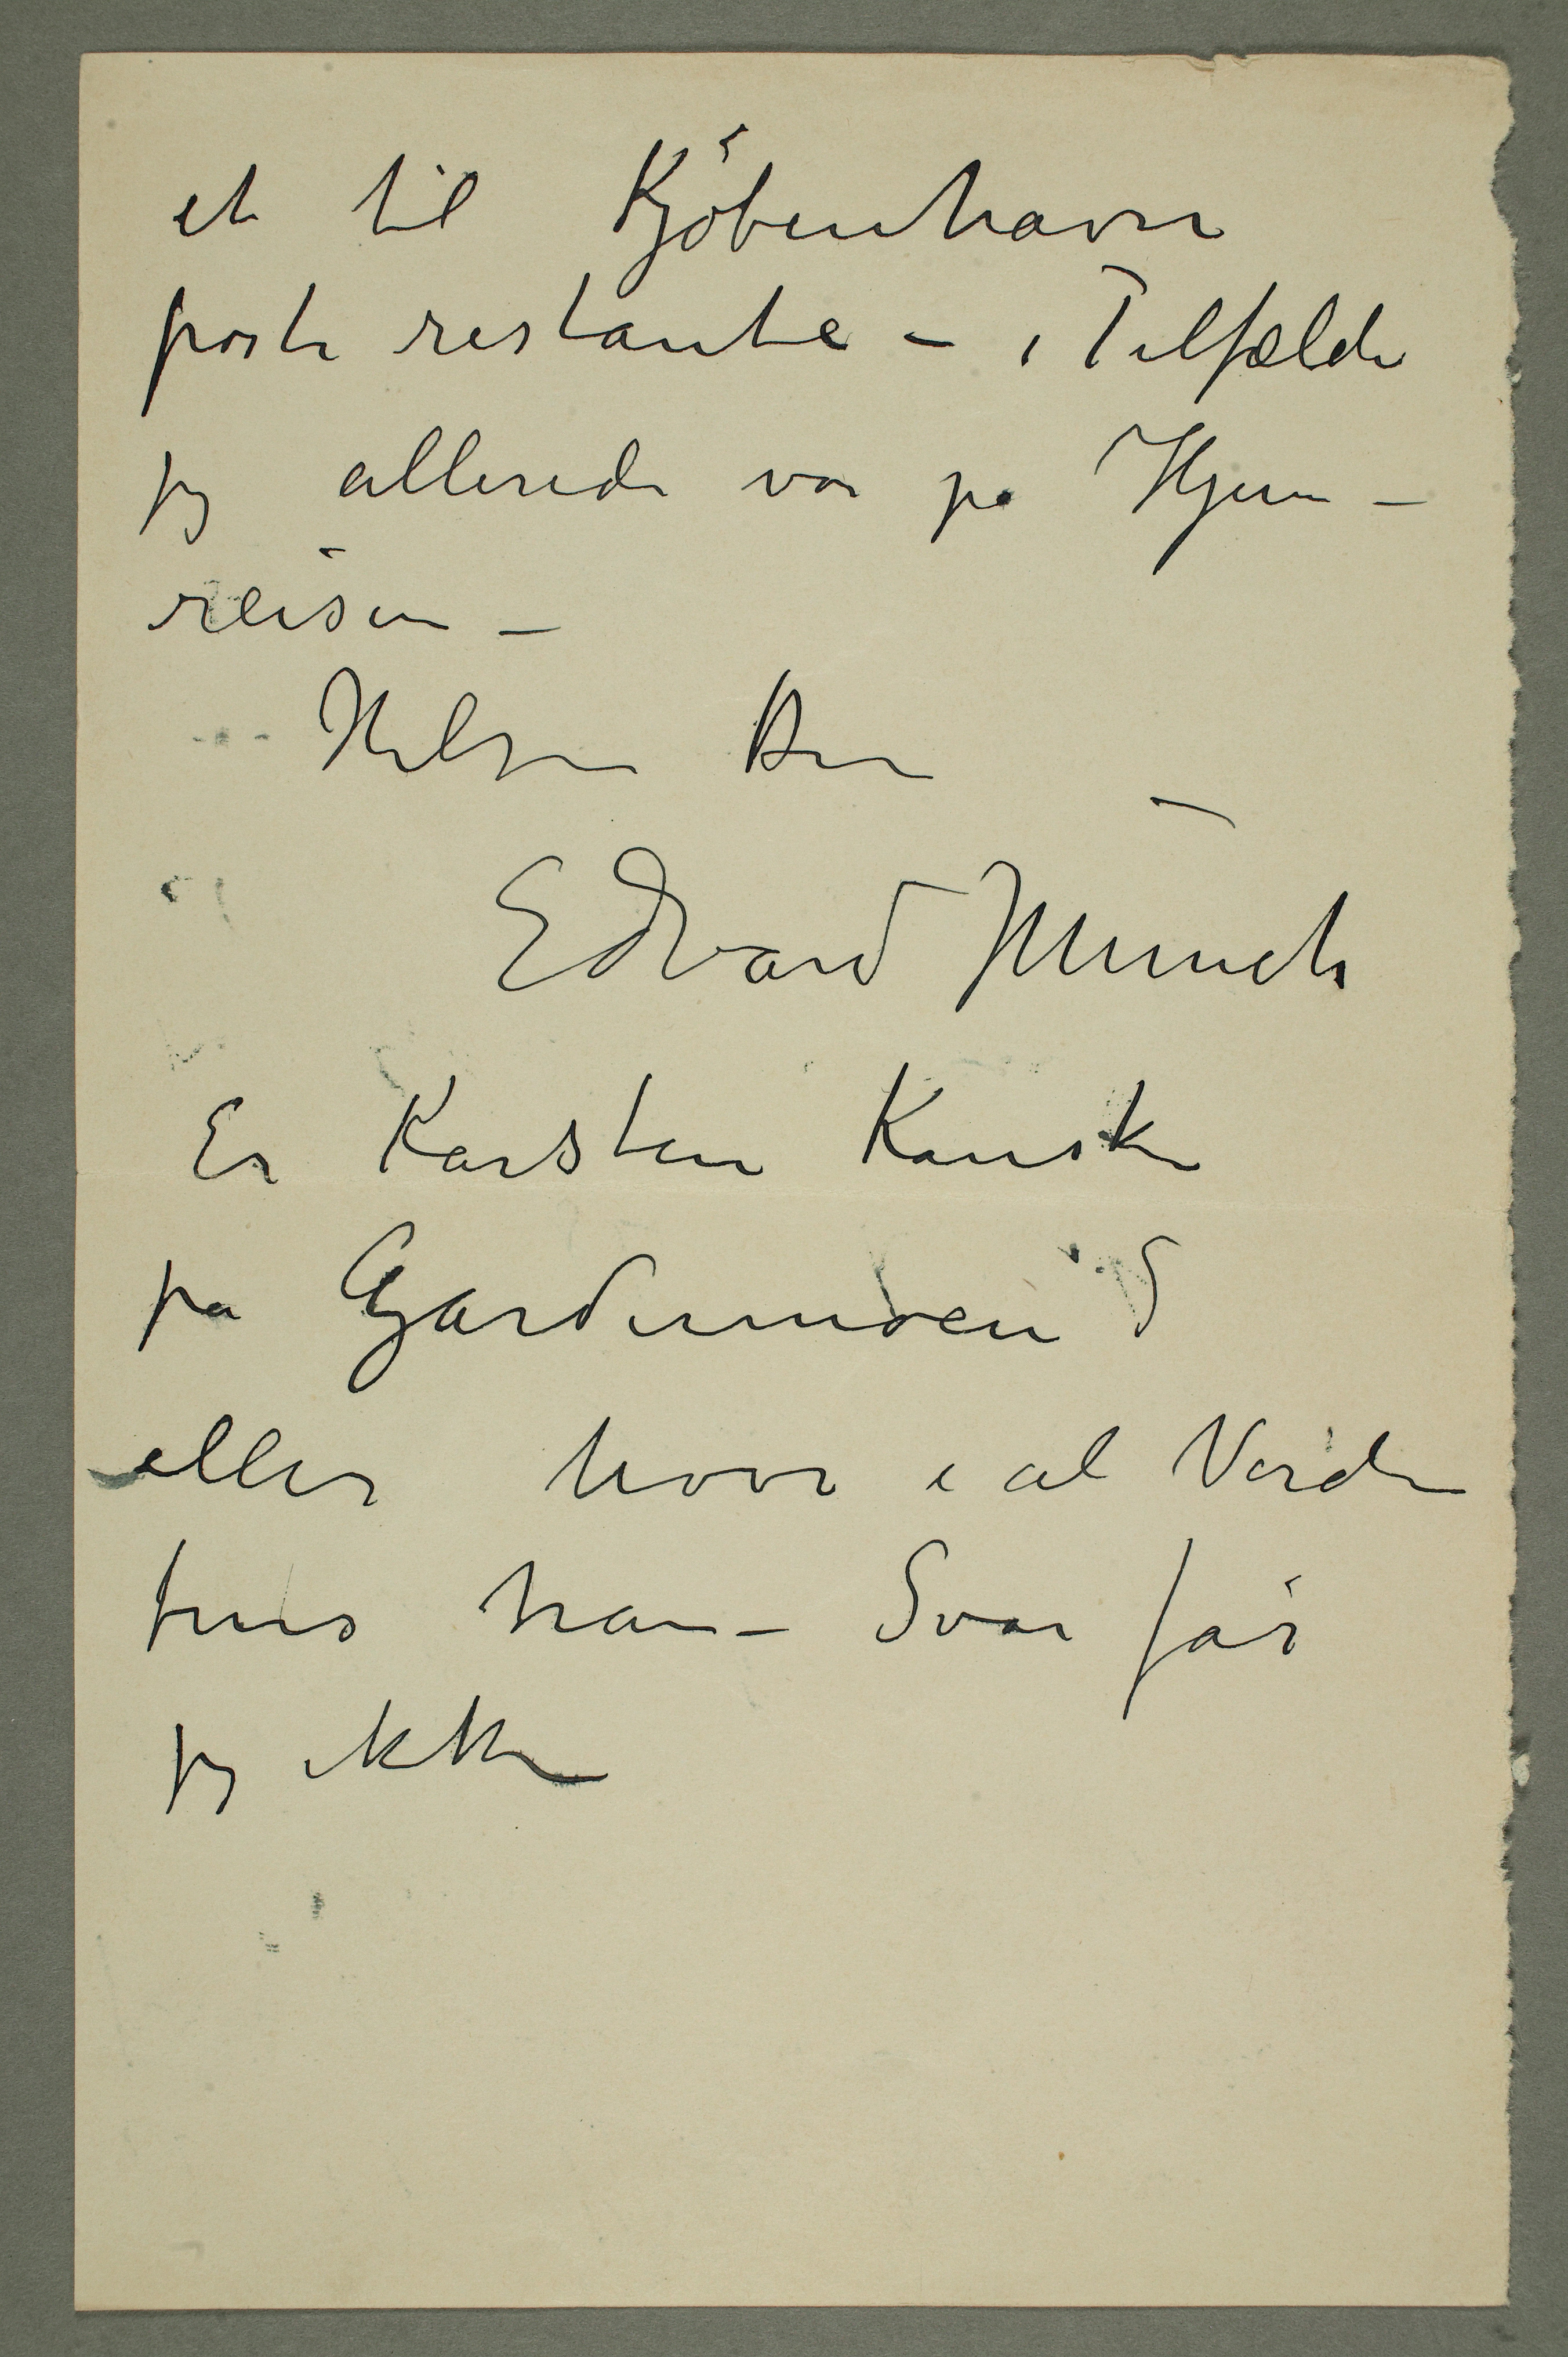 et til Kjøbenhavn
poste restante – i Tilfælde
jeg allerede var på Hjem-
reisen –
Hilsen Din
Edvard Munch
Er Karsten Kanske
på Gardermoen?
eller hvor i al Verden
fins han – Svar får
jeg ikke